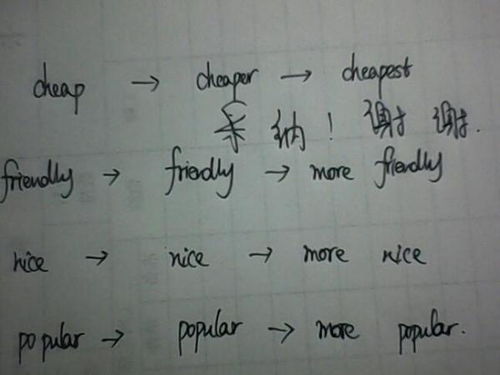 cheap → cheaper → cheapest
采纳! 谢谢 谢谢.
friendly → friendly → more friendly
nice → nice → more nice
popular → popular → more popular.